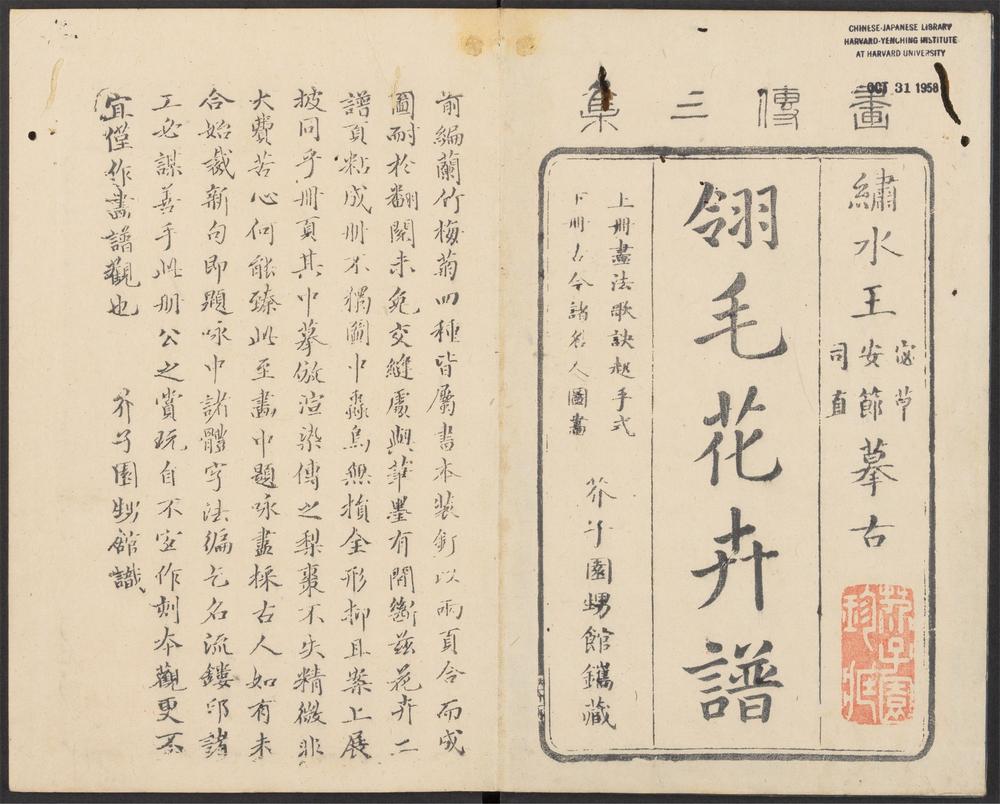 CHINESE-JAPANESE LIBRARY
HARVARD-YENCHING INSTITUTE
AT HARVARD UNIVERSITY
OCT 31 1958
畫傳三集
繡水王
宓草
安節
司直
摹古
翎毛花卉譜
上冊畫法歌訣起手式
下冊古今諸名人圖畫
芥子園甥館鐫藏
芥子園
珍藏
前編蘭竹梅菊四種皆屬書本裝釘以兩頁合而成
圖耐於翻閱未免交縫處與筆墨有間斷茲花卉二
譜頁粘成冊不獨圖中蟲鳥無損全形抑且案上展
披同乎冊頁其中摹倣渲染傳之梨棗不失精微非
大費苦心何能臻此至畫中題咏盡採古人如有未
合始裁新句即題咏中諸體字法編乞名流鏤印諸
工必謀善手此冊公之賞玩自不宜作刻本觀更不
宜僅作畫譜觀也
芥子園甥館識